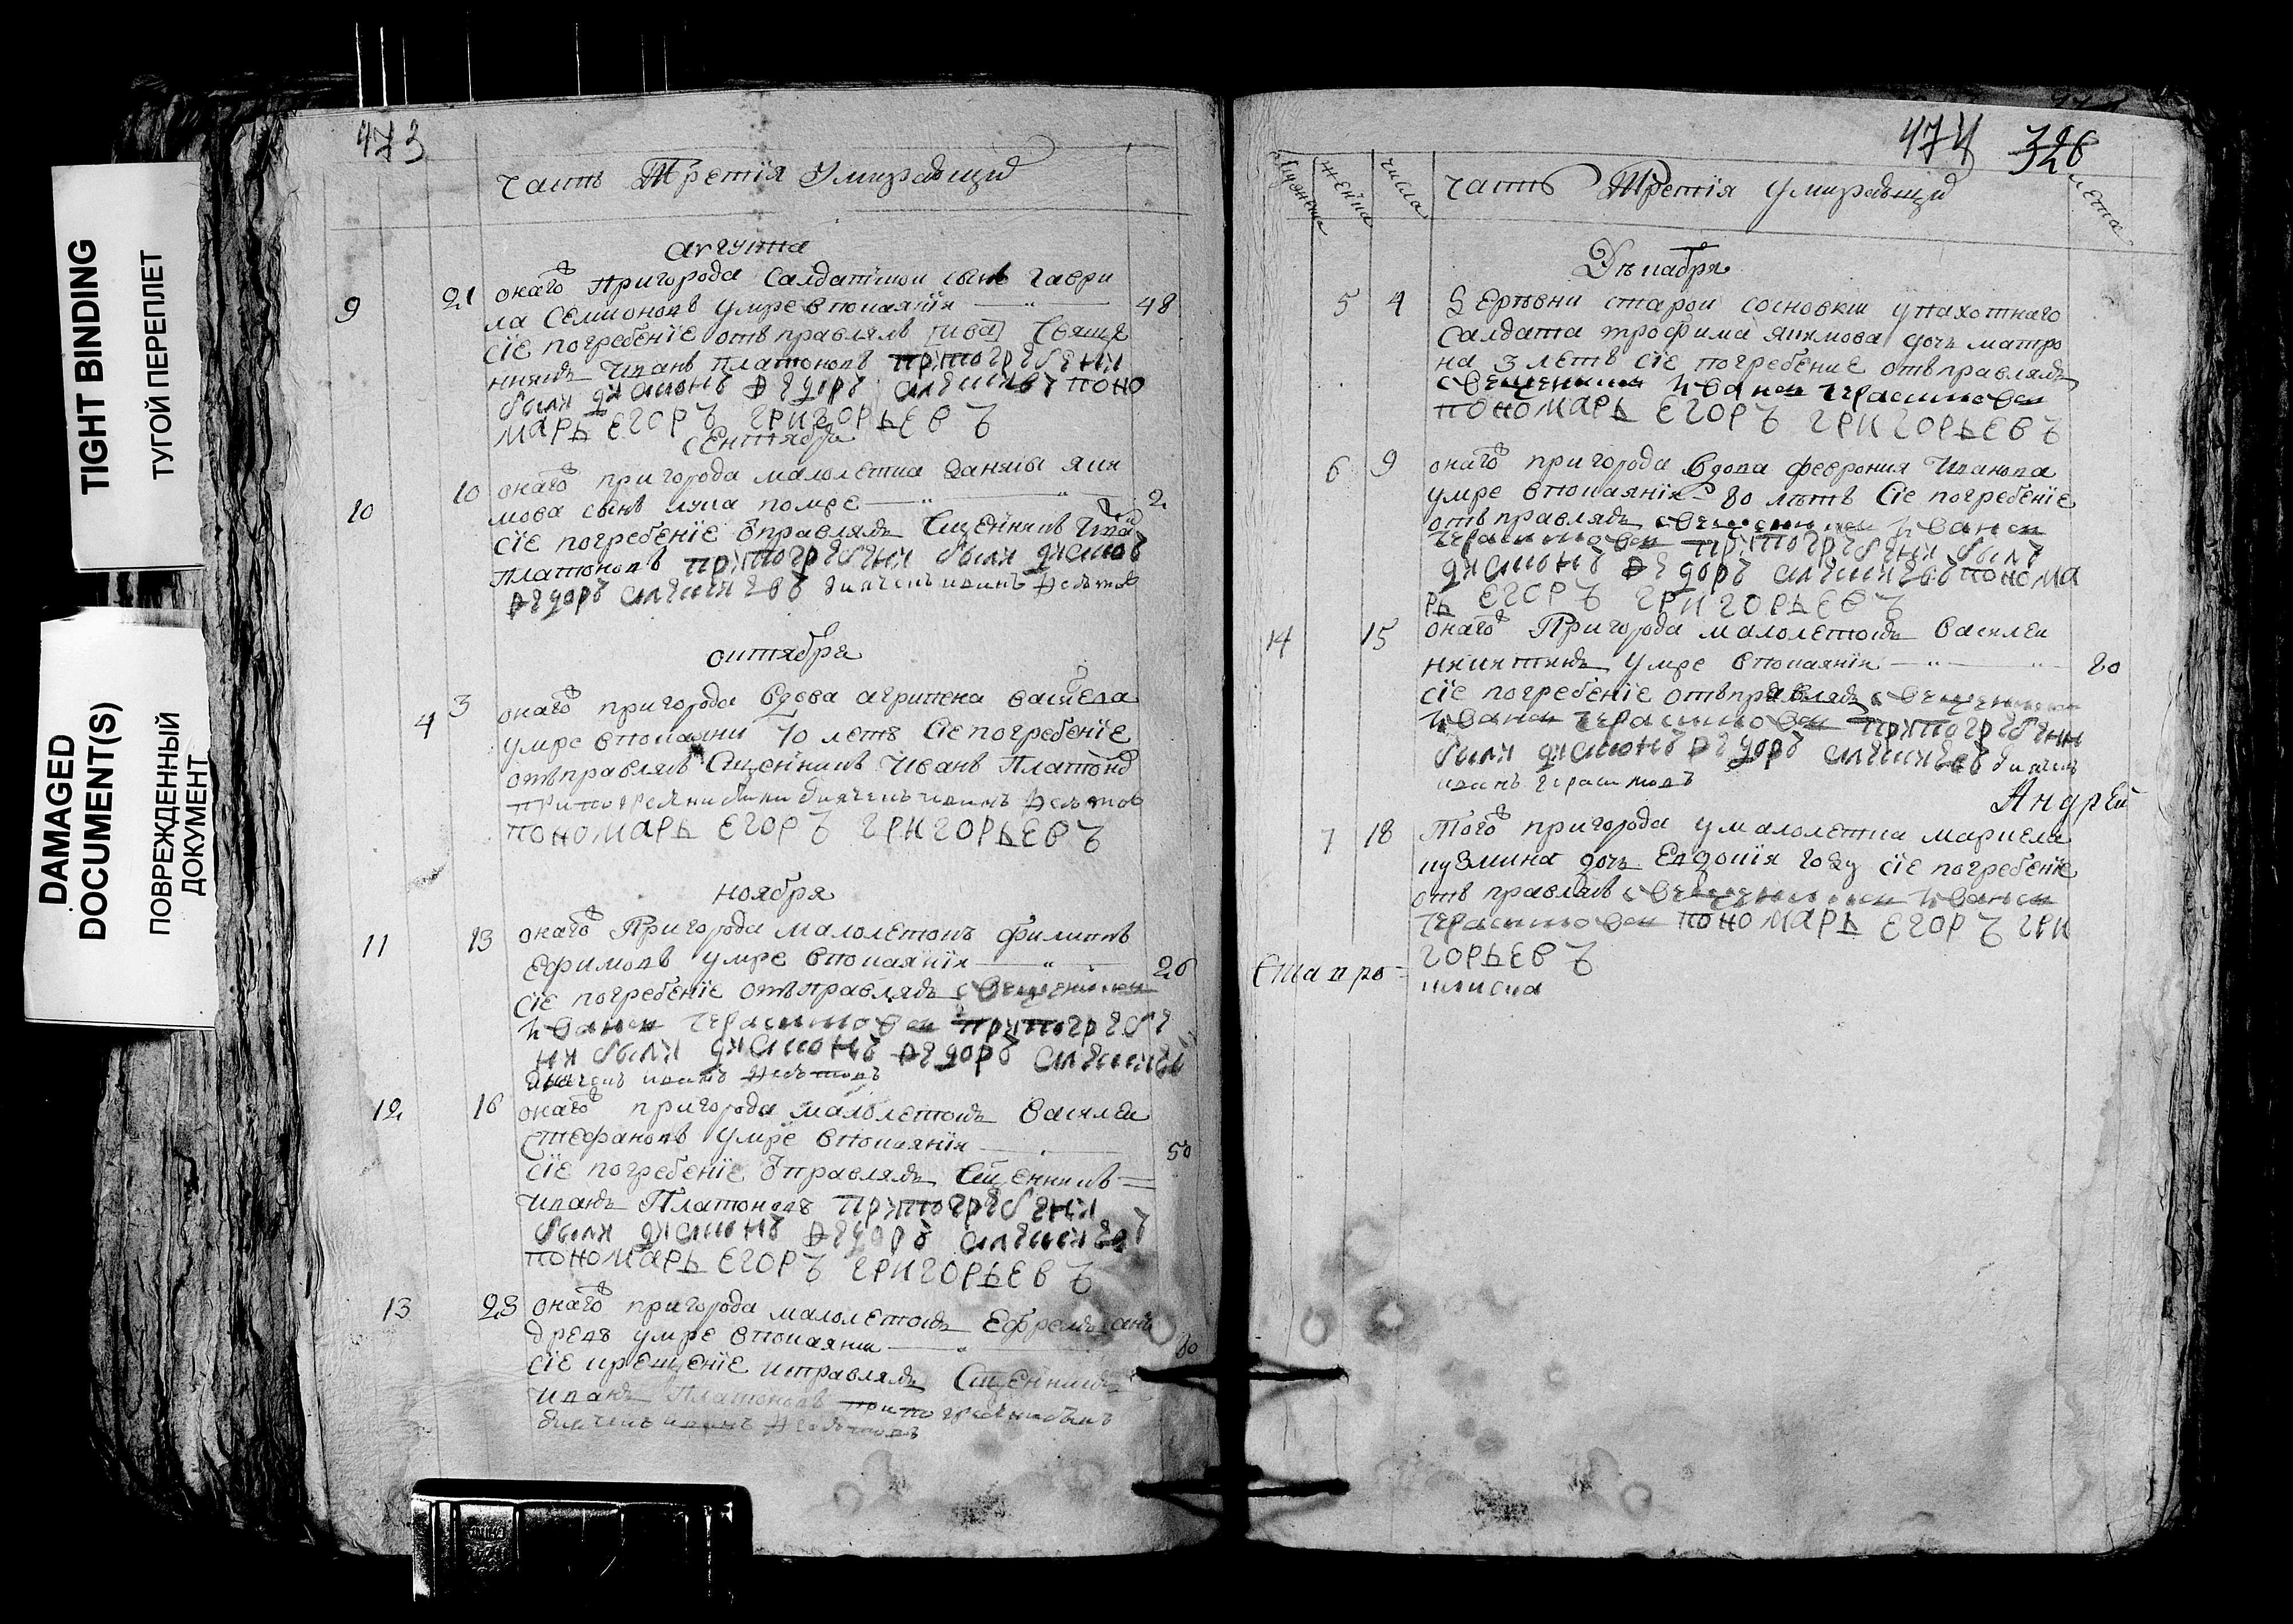 TIGHT BINDING
ТУГОЙ ПЕРЕПЛЕТ
DAMAGED
DOCUMENT(S)
ПОВРЕЖДЕННЫЙ
ДОКУМЕНТ
473
часть Третiя Умиравщих
августа
9 21 онаго Пригорода Салдатцкои сынъ гаври
ла Семионовъ умре впокаянiи 48
сiе погребенiе отъправлялъ [ива] Свяще
нникъ Иванъ Платоновъ припогребени
были дияконъ Федоръ Алексиевъ поно
марь Егоръ Григорьевъ
сентября
10 10 онаго пригорода малолетка данилы яки
мова сынъ лука помре 2
сiе погребенiе ѿправлялъ Сщенникъ Иван
Платоновъ припогребени были дияконъ
Федоръ Алексиевъ дьячекъ иванъ Федотов
октября
4 3 онаго пригорода вдова агрипена васильева
умре впокаяни 70 летъ Сiе погребенiе
отъправлялъ Сщенникъ Иванъ Платонов
припогребени были дьячекъ иванъ Федотов
пономарь Егоръ Григорьевъ
ноября
11 13 онаго Пригорода малолетокъ филипъ
Ефимовъ умре впокаянiи 26
сiе погребенiе отъправлялъ священикъ
Иванъ Герасимовъ припогребе
ни были дияконъ Федоръ Алексиевъ
дьячекъ иванъ Федотовъ
12 16 онаго пригорода малолетокъ Василеи
Стефановъ умре впокаянiи 50
сiе погребенiе ѿправлялъ Сщенникъ
Иванъ Платоновъ припогребени
были дияконъ Федоръ Алексиевъ
пономарь Егоръ Григорьевъ
13 23 онаго пригорода малолетокъ Ефремъ ан
дреевъ умре впокаяни 30
сiе крещенiе исправлялъ Сщенникъ
Иванъ Платоновъ припогребени былъ
дьячекъ иванъ Федотовъ
474 326
мужеска женска числа часть Третiя умиравщих лета
Декабря
5 4 Деревни старои сосновки упахотнаго
Салдата трофима якимова дочь матро
на 3 летъ сiе погребение отъправлялъ
священикъ Иванъ Герасимовъ
пономарь Егоръ Григорьевъ
6 9 онаго пригорода вдова феврония Иванова
умре впокаянiи 80 летъ Сiе погребенiе
отъправлялъ священикъ Иванъ
Герасимовъ припогребени былъ
дияконъ Федоръ Алексиевъ понома
рь Егоръ Григорьевъ
14 15 онаго Пригорода малолетокъ Василеи
никитинъ Умре впокаянiи 80
сiе погребенiе отъправлялъ священикъ
Иванъ Герасимовъ припогребени
были дияконъ Федоръ Алексиевъ дьячекъ
иванъ герасимовъ
Андрей
7 18 Того пригорода умалолетка маркела
кузмина дочь Евдокiя году сiе погребенiе
отъ правлялъ священикъ Иванъ
Герасимовъ пономарь Егоръ Гри
горьевъ